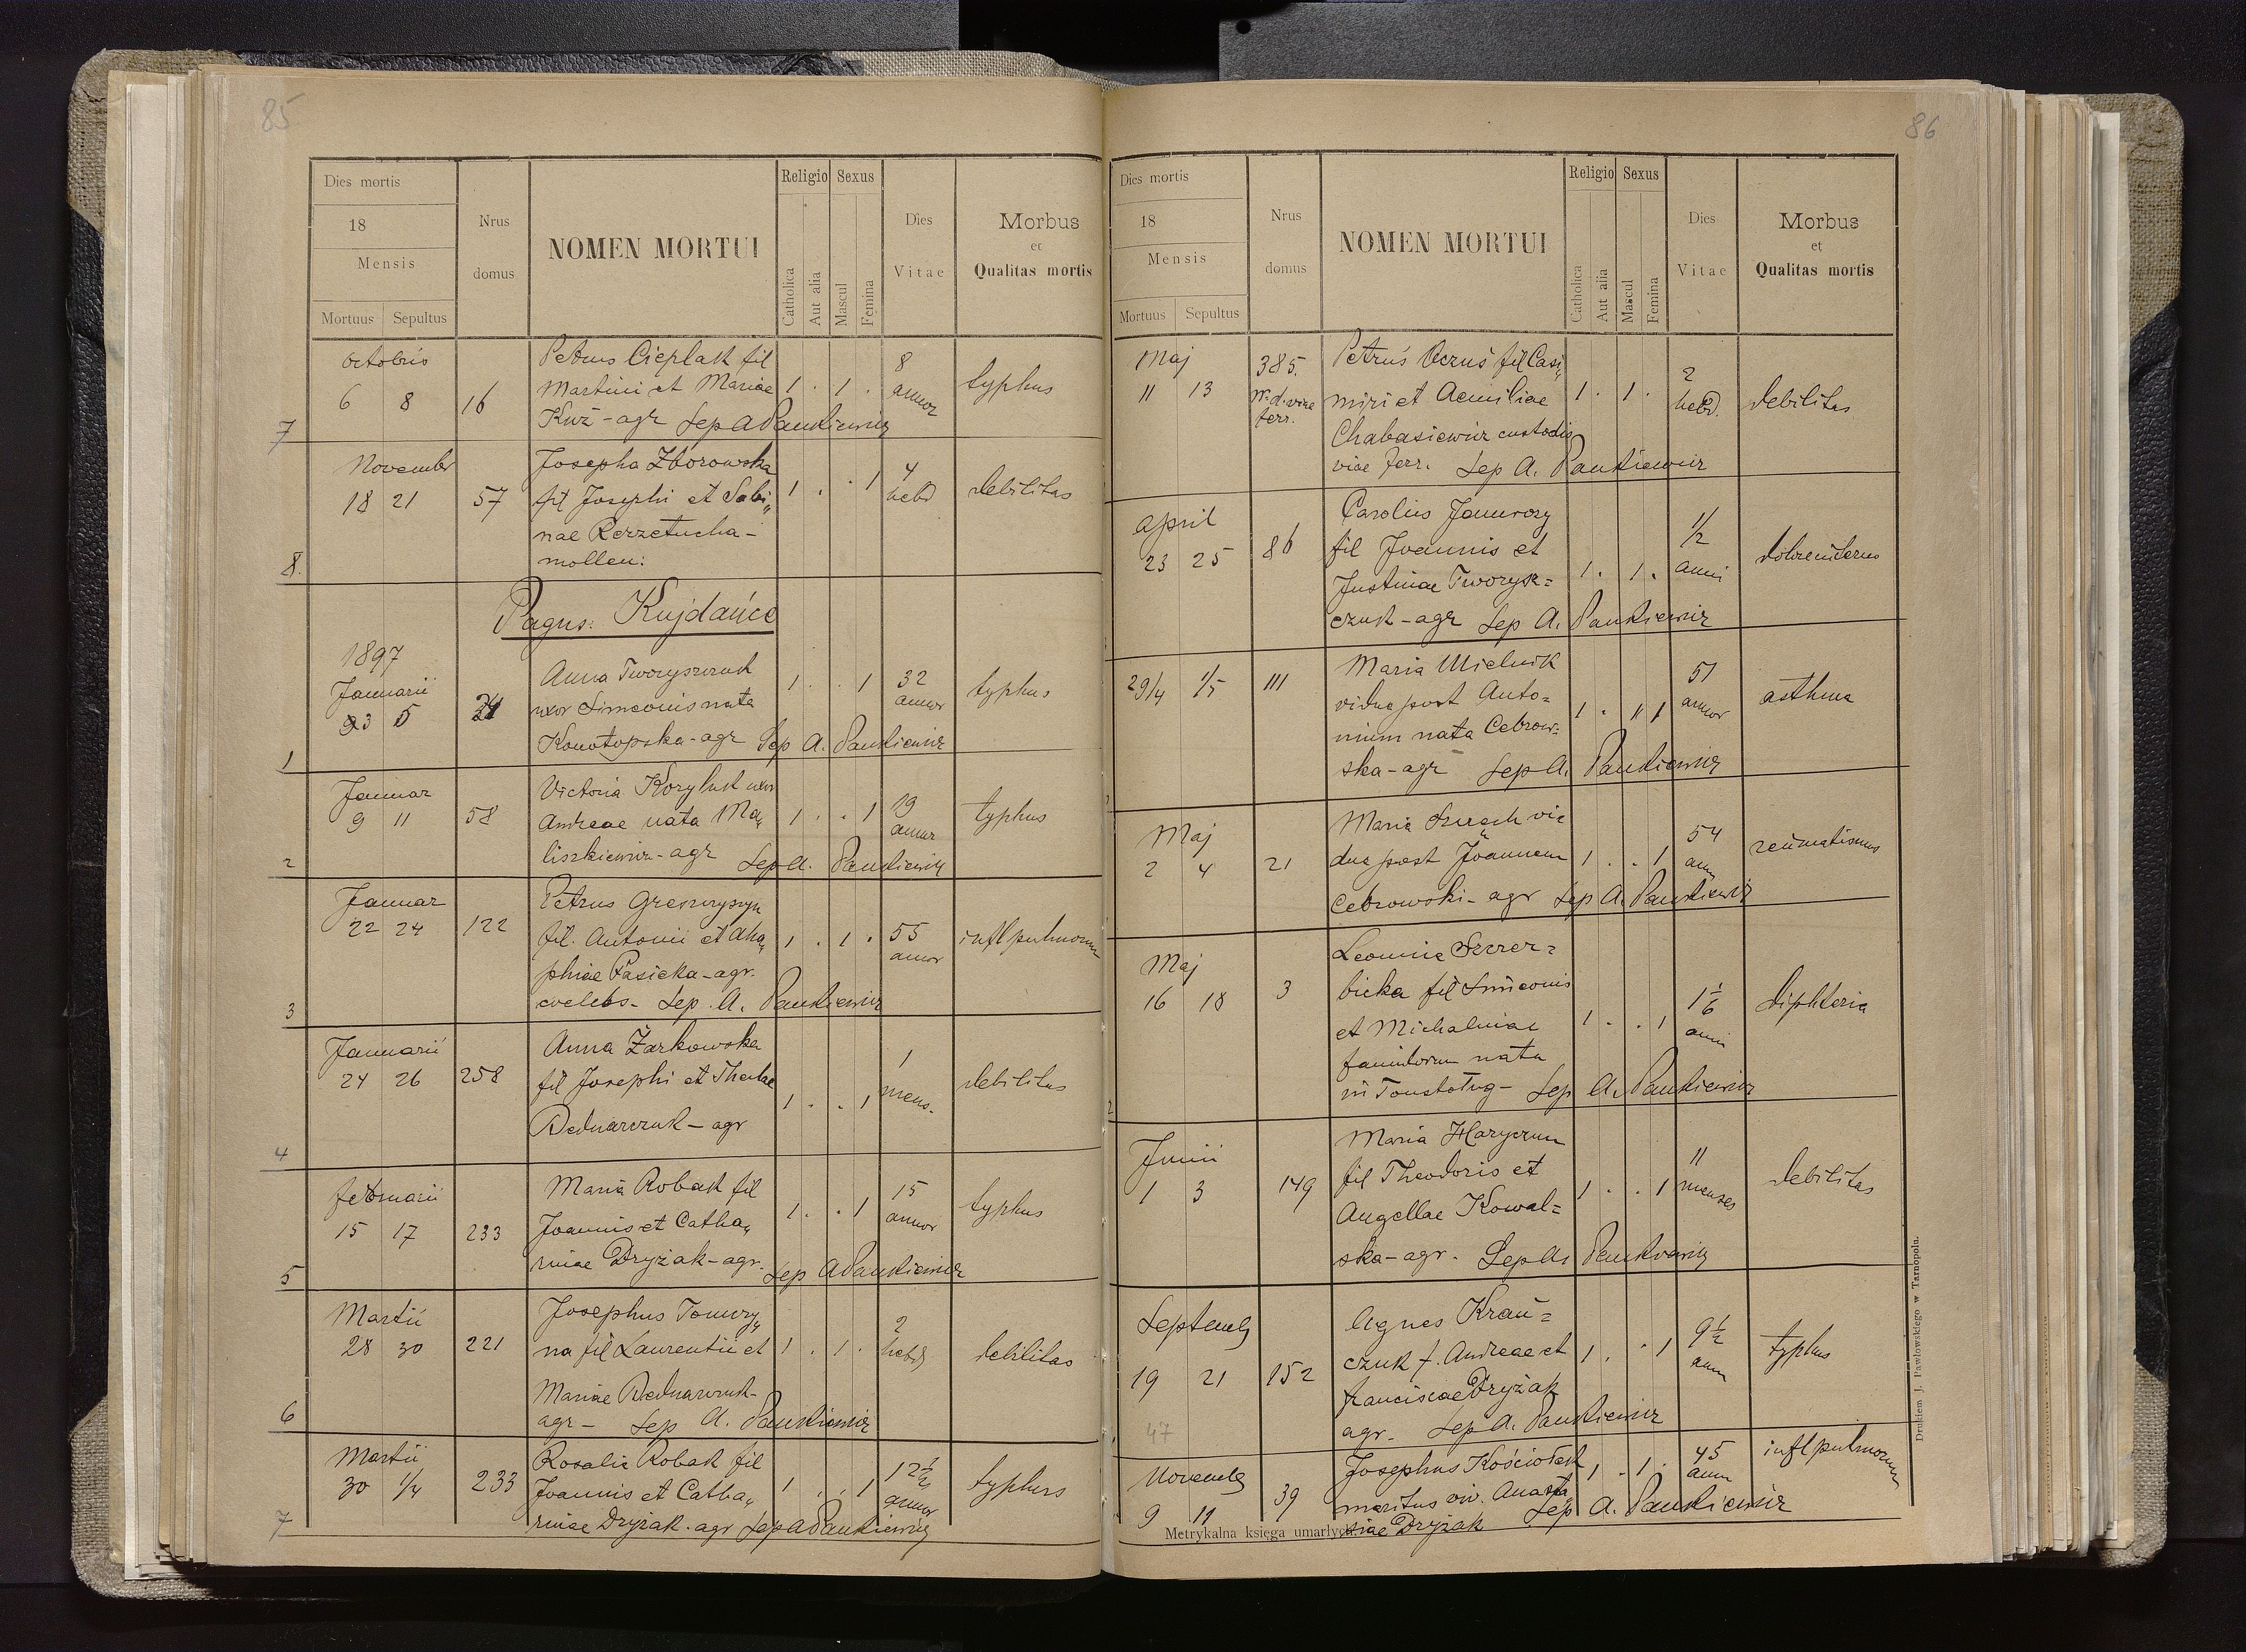 85
Dies mortis
18
Mensis
Mortuus Sepultus
Nrus
domus
NOMEN MORTUI
Religio Sexus
Catholica
Aut alia
Mascul
Femina
Dies
Vitae
Morbus
et
Qualitas mortis
octobris
6 8 16
Petrus Cieplak fil
Martini et Mariae
Kuź - agr Sep A Pankiewicz
1 . 1 .
8
annor
typhus
7
Novembr
18 21 57
Josepha Zborowska
fil Josephi et Sabi„
nae
1 . . 1
4
hebd
debilitas
8.
Pagus: Kujdańce
1897
Januarii
3 5
Anna Tworyszczuk
uxor Simeonis nata
Konotopska - agr Sep A. Pankiewicz
1 . . 1
32
annor
typhus
1
Januar
9 11 58
Victoria Koryluk uxor
Andreae nata Ma„
liszkiewicz - agr Sep A. Pankiewicz
1 . . 1
19
annor
typhus
2
Januar
22 24 122
Petrus
fil. Antonii et Aha„
phiae Pasieka - agr.
coelebs - Sep. A. Pankiewicz
1 . 1 .
55
annor
infl pulmonum
3
Januarii
24 26 258
Anna Żarkowska
fil Josephi et Theclae
Bednarczuk - agr
1 . . 1
1
mens.
debilitas
4
februarii
15 17 233
Maria Robak fil
Joannis et Catha„
rinae Dryżak - agr.
Sep A Pankiewicz
1 . . 1
15
annor
typhus
5
Martii
28 30 221
Josephus Tomczy„
na fil Laurentii et
Mariae Bednarczuk -
agr - Sep A. Pankiewicz
1 . 1 .
2
hebd
debilitas
6
Martii
30 1/4 233
Rosalia Robak fil
Joannis et Catha„
rinae Dryżak. agr Sep A Pankiewicz
1 . . 1
12 1/2
annor
typhus
7
86
Dies mortis
18
Mensis
Mortuus Sepultus
Nrus
domus
NOMEN MORTUI
Religio Sexus
Catholica
Aut alia
Mascul
Femina
Dies
Vitae
Morbus
et
Qualitas mortis
Maj
11 13
385.
N. d. viae
ferr.
Petrus fil Casi„
miri et Aemiliae
Chabasiewicz custodis
viae ferr. Sep A. Pankiewicz
1 . 1 .
2
hebd.
debilitas
April
23 25 86
Carolus
fil Joannis et
Justinae Tworysz=
czuk - agr Sep A. Pankiewicz
1 . 1 .
1/2
anni
29/4 1/5 111
Maria Mielnik
vidua post Anto=
nium nata Cebrow=
ska - agr Sep A. Pankiewicz
51
annor
asthma
Maj
2 4 21
Maria vi
dua post Joannem
Cebrowski - agr Sep A. Pankiewicz
1 . . 1
54
ann
reumatismus
Maj
16 18 3
Leonia Szczer=
bicka fil Simeonis
et Michalinae
famulorum nata
in Toustoług - Sep A. Pankiewicz
1 . . 1
1 1/6
anni
diphteria
2
Junii
1 3 149
Maria Haryczun
fil Theodoris et
Angellae Kowal=
ska - agr. Sep A. Pankiewicz
1 . . 1
11
menses
debilitas
Septemb
19 21 152
Agnes Krań=
czuk f. Andreae et
franciscae Dryżak
agr. Sep A. Pankiewicz
1 . . 1
9 1/2
ann
typhus
47
Novemb
9 11 39
Josephus Kościołek
maritus viv. Anasta„
siae Dryżak Sep A. Pankiewicz
1 . 1 .
45
ann
infl pulmonum
Metrykalna księga umarłych.
Drukiem J. Pawłowskiego w Tarnopolu.